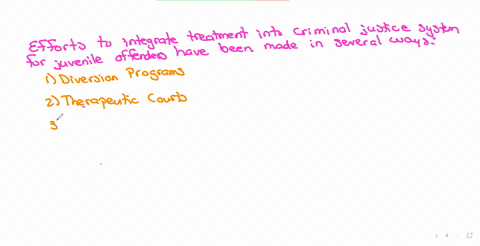 Efforts to integrate treatment into criminal justice system
for juvenile offenders have been made in several ways:
1) Diversion Programs
2) Therapeutic Courts
3